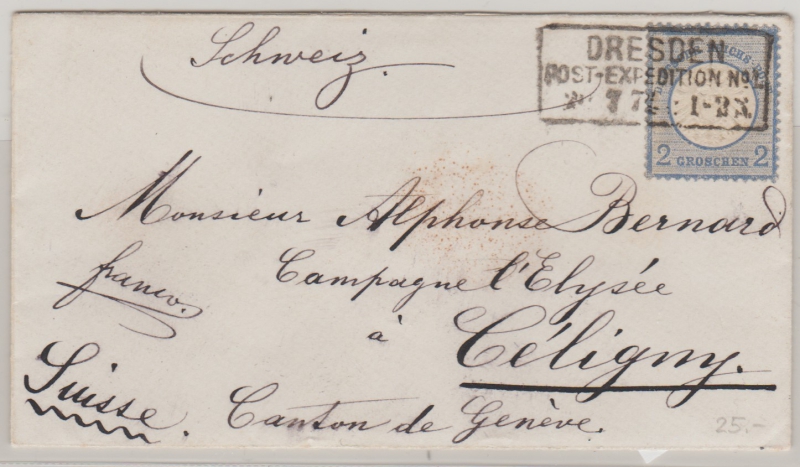 Schweiz.
DRESDEN
POST-EXPEDITION No
1-2 N.
2 GROSCHEN 2
Monsieur Alphonse Bernard
franco.
Campagne l'Elysée
à
Céligny.
Suisse.
Canton de Genève.
25.-